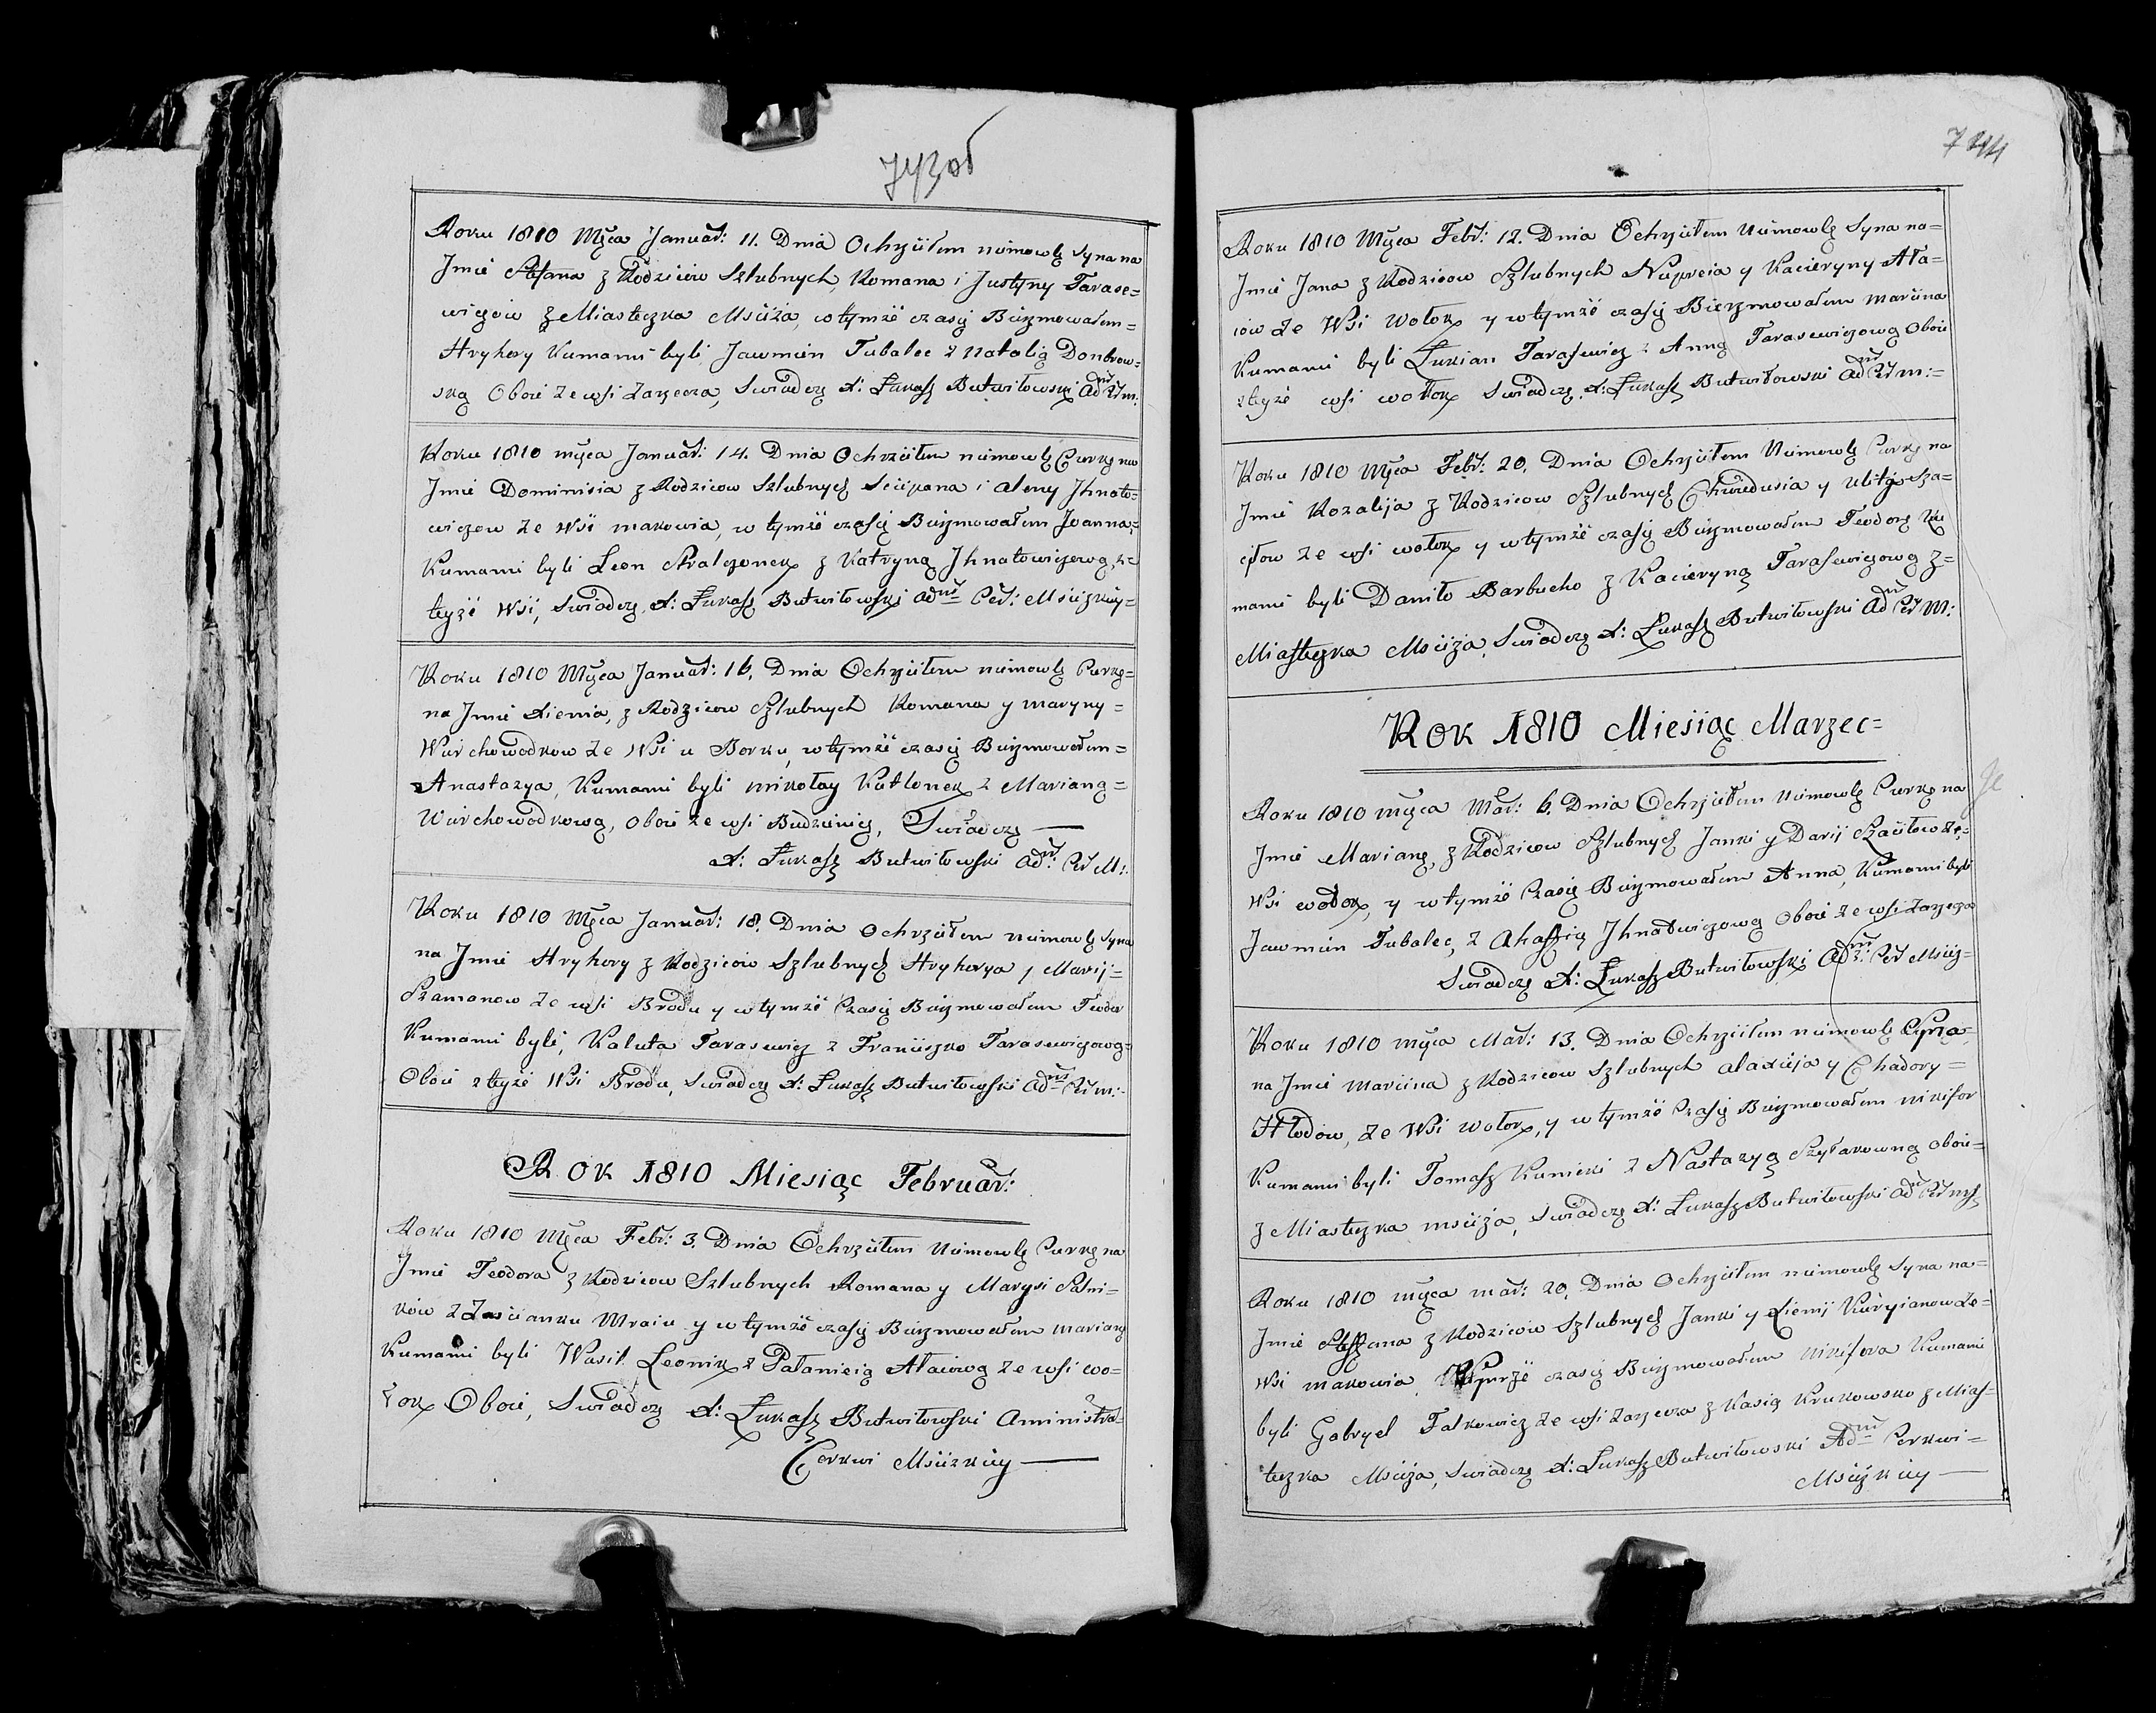 743об
Roku 1810 Mca Januar: 11. Dnia Ochrzciłem niemowlę Syna na
Jmie Stefana z Rodziców Szlubnych Romana i Justyny Tarase=
wiczów z Miasteczka Mściża, w tymże czasię Bierzmowałem=
Hryhory Kumami byli Jawmien Tubalec z Natalią Donbrow=
ską Oboie ze wsi Zarzecza, Swiadczę X: Łukasz Butwiłowski Adm: Cer m:
Roku 1810 mca Januar: 14. Dnia Ochrzciłem niemowlę Curkę na
Jmie Dominisia z Rodzicow Szlubnych Sciepana i Aleny Jhnato=
wiczow ze Wsi makowia, w tymże czasię Bierzmowałem Joanna,=
Kumami byli Leon Stralczonek z Katryną Jhnatowiczową, z=
teyże Wsi, Swiadczę X: Łukasz Butwiłowski Adm: Cer: Mścizkiey=
Roku 1810 Mca Januar: 16. Dnia Ochrzciłem niemowlę Curkę=
na Jmie Xienia, z Rodzicow Szlubnych Romana y maryny=
Wierchowodkow ze Wsi u Borku, w tymże czasię Bierzmowałem=
Anastazya, Kumami byli mikołay Kotlonek z Marianą=
Wierchowodkową, oboie ze wsi Budzienicz, Swiadczę —
X: Łukasz Butwiłowski Adm: Cer M:
Roku 1810 Mca Januar: 18. Dnia ochrzciłem niemowlę Syna
na Jmie Hryhory z Rodziców Szlubnych Hryhorya y Maryi=
Szamanow ze wsi Brodu y w tymże Czasię Bierzmowałem Teodor
Kumami byli, Kaluta Tarasewicz z Franciszko Tarasewiczową=
Oboie z teyże Wsi Brodu, Swiadczę X: Łukasz Butwiłowski Adm: Cer m:
ROK 1810 Miesiąc Februar:
Roku 1810 Mca Febr: 3. Dnia Ochrzciłem Niemowlę Curkę na
Jmie Teodora z Rodzicow Szlubnych Romana y Marysi Pałni=
ków z Zascianku Mraiu y w tymże czasię Bierzmowałem marianę
Kumami byli Wasil Leonik z Pałanieią Ataiową ze wsi wo=
łok Oboie, Swiadczę X: Łukasz Butwiłowski Aministrat:
Cerkwi Mscizkiey —
744
Roku 1810 Mca Febr: 12. Dnia Ochrzciłem Niemowlę Syna na=
Jmie Jana z Rodzicow Szlubnych Nupreia y Kacieryny Ata=
iów ze Wsi Wołok y w tymże czasię Bierzmowałem Marcina
Kumami byli Łukian Tarasewicz z Anną Tarasewiczową Oboie
z teyże wsi wołok Swiadczę X: Łukasz Butwiłowski Adm: Cer m:=
Roku 1810 Mca Febr: 20. Dnia Ochrzciłem Niemowlę Curkę na
Jmie Rozalija z Rodzicow Szlubnych Chwiedusia y Ulity Sza=
ciłow ze wsi wołok y w tymże czasię Bierzmowałem Teodorę Ku
mami byli Daniło Barbucho z Kacieryną Tarasewiczową z=
Miasteczka Msciża, Swiadczę X: Łukasz Butwiłowski Adm: Cer M:
ROK 1810 Miesiąc Marzec=
Roku 1810 mca Mar: 6. Dnia Ochrzciłem Niemowlę Curkę na
Jmie Marianę, z Rodzicow Szlubnych Janki y Daryi Szaciłow ze=
Wsi wołok, y w tymże Czasię Bierzmowałem Anna, Kumami byli
Jawmien Tubalec, z Ahassią Jhnatwiczową Oboie ze wsi Zarzecza
Swiadczę X: Łukasz Butwiłowski Adm: Cer Msciz=
Roku 1810 mca Mar: 13. Dnia Ochrzciłem niemowlę Syna
na Jmie Marcina z Rodzicow Szlubnych Alaxieja y Chadory=
Hłodow, ze Wsi wołok, y w tymże Czasię Bierzmowałem nikifor
Kumami byli Tomasz Kunicki z Nastazyą Szyłakowną oboie=
z Miasteczka msciża, Swiadczę X: Łukasz Butwiłowski Adm: Cer
Roku 1810 mca mar: 20. Dnia Ochrzciłem niemowlę Syna na=
Jmie Steffana z Rodziców Szlubnych Janki y Xienij Kurzianow ze=
Wsi makowia, czasię Bierzmowałem Nikifora Kumami
byli Gabryel Falkowicz ze wsi Zarzecza z Kasią Krukowsko z Mias=
teczka Msciża, Swiadczę X: Łukasz Butwiłowski Adm: Cerkwi=
Msciżkiey —